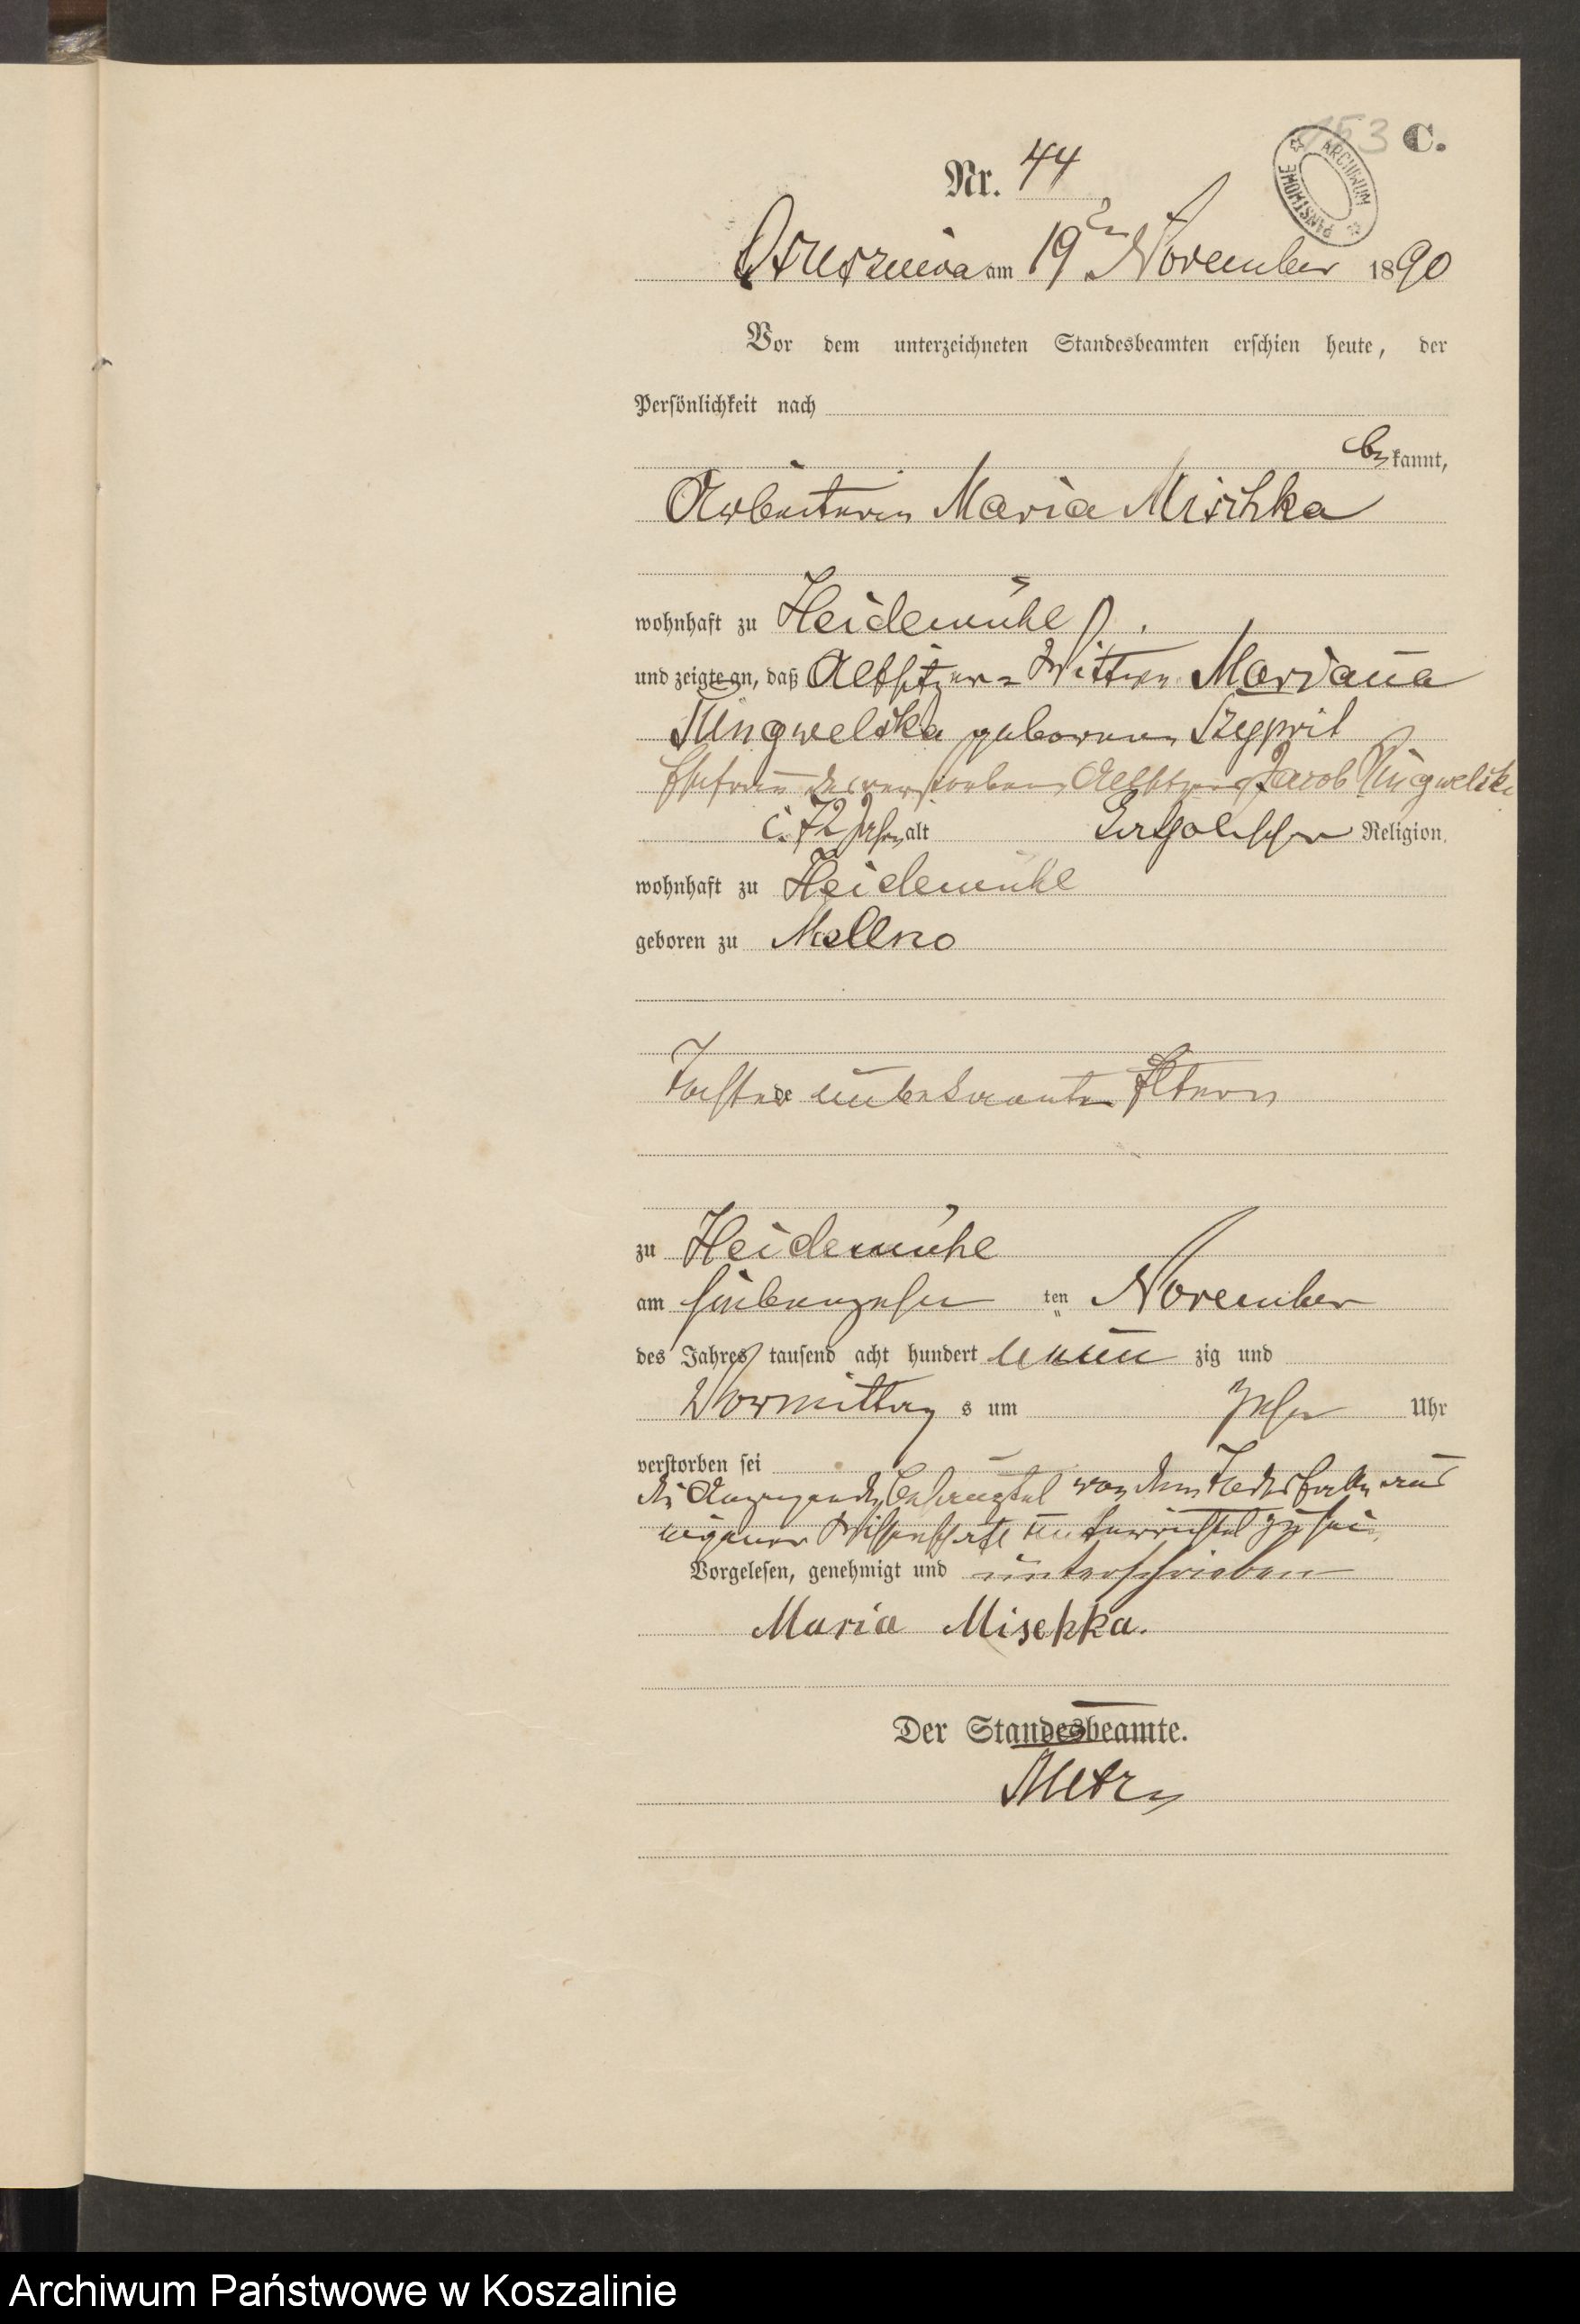 153 C.
ARCHIWUM PAŃSTWOWE
Nr. 44
Osusznica am 19ten November 1890
Vor dem unterzeichneten Standesbeamten erschien heute, der
Persönlichkeit nach
bekannt,
Arbeiterin Maria Mischka
wohnhaft zu Heidemühl
und zeigte an, daß Altsitzer-Wittwe Marianna
geborene
Ehefrau des verstorbenen Altsitzers Jacob
c. 72 Jahre alt katholischer Religion,
wohnhaft zu Heidemühl
geboren zu Mellno
Tochter unbekannter Eltern
zu Heidemühl
am siebenzehn ten November
des Jahres tausend acht hundert neun zig und
Vormittag s um zehn Uhr
verstorben sei
die Anzeigende behauptet von dem Todesfalle aus
eigener Wissenschaft unterrichtet zu sein.
Vorgelesen, genehmigt und unterschrieben
Maria Mischka.
Der Standesbeamte.
Archiwum Państwowe w Koszalinie